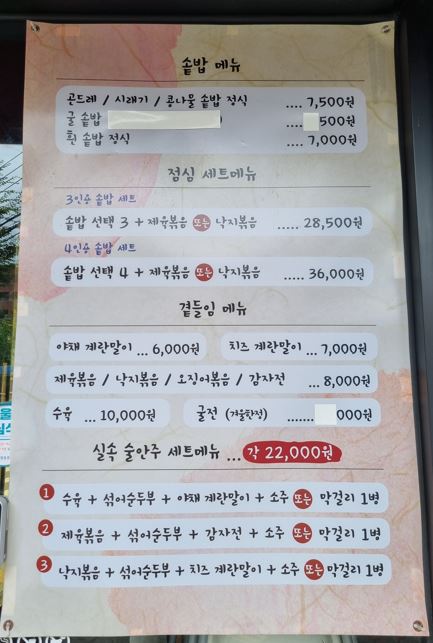 솥밥 메뉴
곤드레 / 시래기 / 콩나물 솥밥 정식 .... 7,500원
굴 솥밥 ....500원
흰 솥밥 정식 .... 7,000원
점심 세트메뉴
3인용 솥밥 세트
솥밥 선택 3 + 제육볶음 또는 낙지볶음 ..... 28,500원
4인용 솥밥 세트
솥밥 선택 4 + 제육볶음 또는 낙지볶음 ..... 36,000원
곁들임 메뉴
야채 계란말이 ... 6,000원 치즈 계란말이 ... 7,000원
제육볶음 / 낙지볶음 / 오징어볶음 / 감자전 ... 8,000원
수육 ... 10,000원 굴전 (겨울한정) ....... 000원
실속 술안주 세트메뉴 ... 각 22,000원
1 수육 + 섞어순두부 + 야채 계란말이 + 소주 또는 막걸리 1병
2 제육볶음 + 섞어순두부 + 감자전 + 소주 또는 막걸리 1병
3 낙지볶음 + 섞어순두부 + 치즈 계란말이 + 소주 또는 막걸리 1병